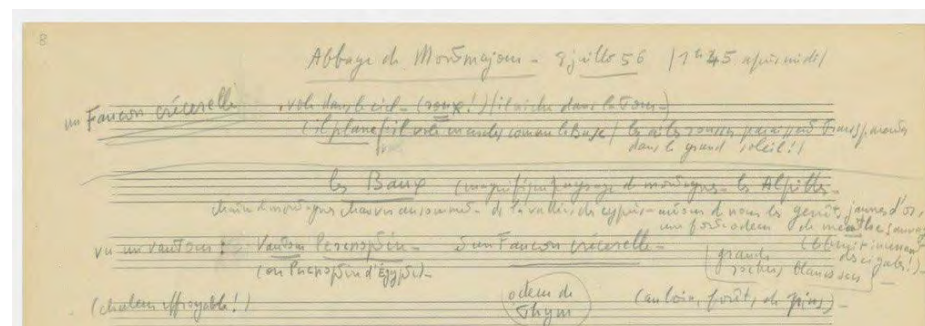 8
Abbaye de Montmajour - 8 juillet 56 (1h 45 après midi)
un Faucon crécerelle vole dans le ciel - (roux!) (il niche dans la tour -)
(il plane, il vole comme la buse / les ailes rousses paraissent transparentes
dans le grand soleil!)
les Baux (magnifique paysage de montagnes - les Alpilles -
chaîne de montagnes - de la vallée, des cyprès - autour de nous les genêts jaunes d'or,
une forte odeur de menthe sauvage
vu un vautour : Vautour Percnoptère - et un Faucon crécerelle -
(ou Percnoptère d'Égypte) -
(grands rochers blancs secs)
des cigales!) -
(chaleur effroyable!)
odeur de
thym
(au loin, forêt, de pins) -